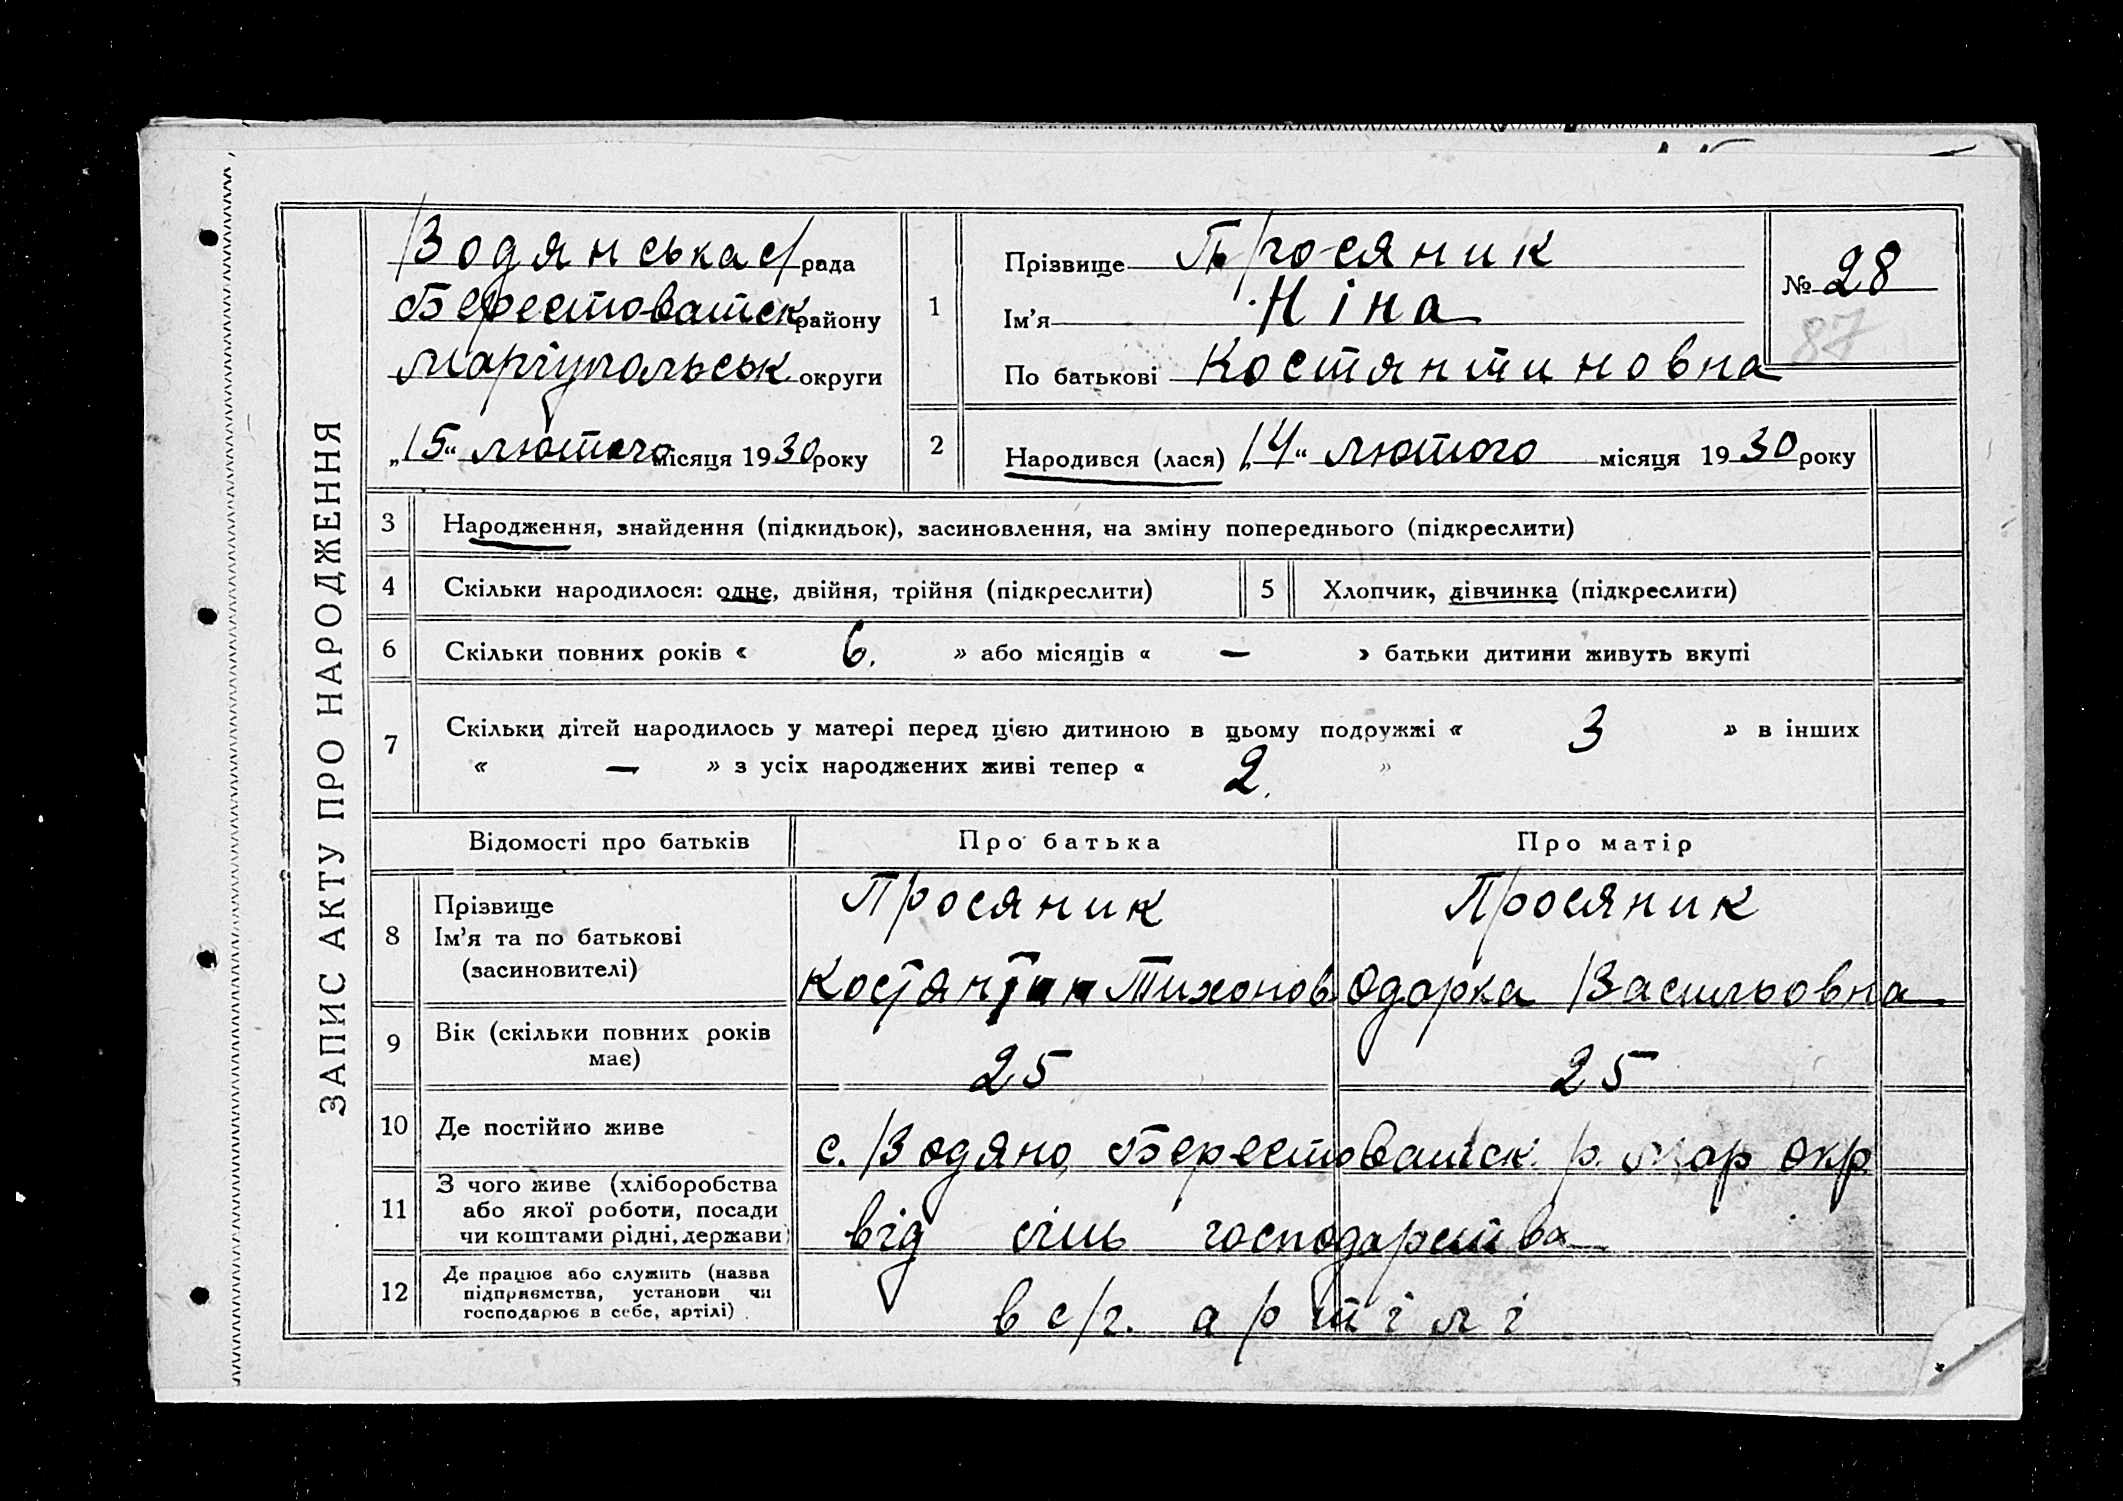 ЗАПИС АКТУ ПРО НАРОДЖЕННЯ
Водянська с/рада
Берестоватск району
Маріупольськ округи
„15“ лютого місяця 1930 року
1
Прізвище Просяник
Ім’я Ніна
По батькові Костянтиновна
№ 28
87
2
Народився (лася) „14“ лютого місяця 1930 року
3 Народження, знайдення (підкидьок), засиновлення, на зміну попереднього (підкреслити)
4 Скільки народилося: одне, двійня, трійня (підкреслити) 5 Хлопчик, дівчинка (підкреслити)
6 Скільки повних років « 6. » або місяців « — » батьки дитини живуть вкупі
7 Скільки дітей народилось у матері перед цією дитиною в цьому подружжі « 3 » в інших
« — » з усіх народжених живі тепер « 2. »
Відомості про батьків Про батька Про матір
8 Прізвище
Ім’я та по батькові
(засиновителі)
Просяник
Костянтин Тихонов
Просяник
Одарка Васильовна
9 Вік (скільки повних років
має)
25 25
10 Де постійно живе с. Водяно Берестоватск. р. Мар окр
11 З чого живе (хліборобства
або якої роботи, посади
чи коштами рідні, держави)
від сіль господарства
12 Де працює або служить (назва
підприємства, установи чи
господарює в себе, артілі)
в с/г. артілі